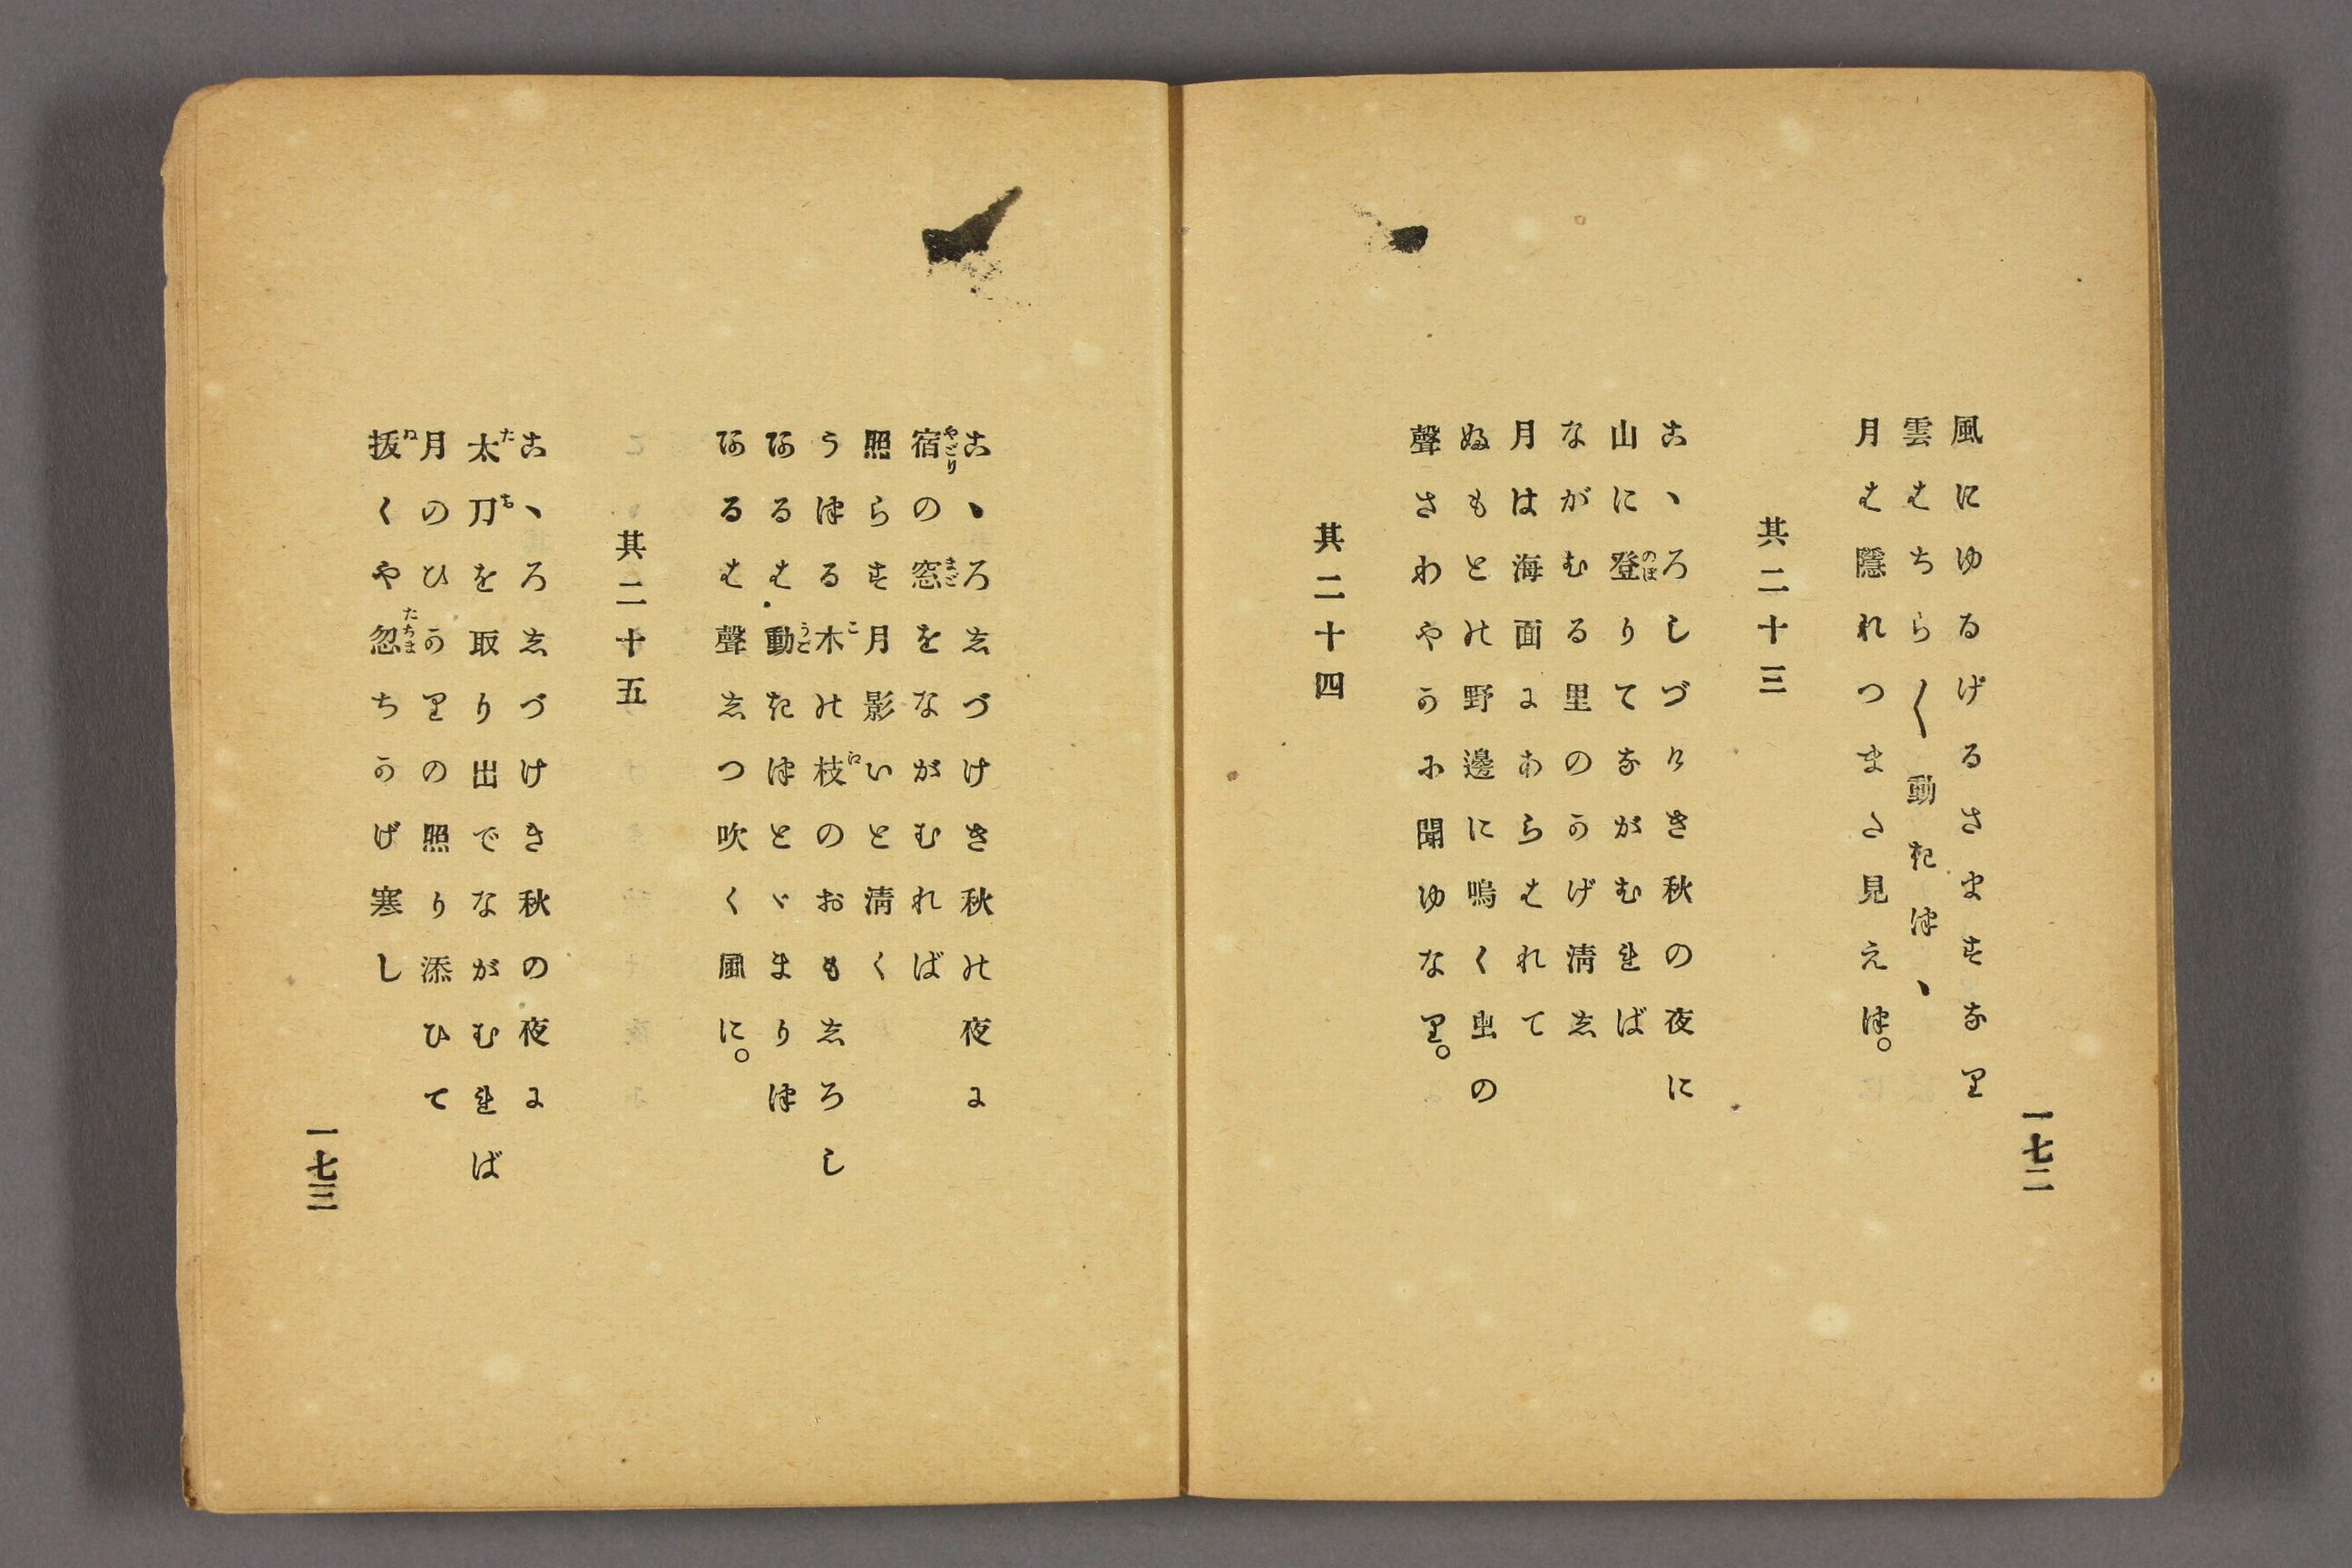 一七二
風にゆるげるさますなり
雲はちら〱動きつゝ
月は隱れつまた見えつ。
其二十三
こゝろしづけき秋の夜に
山に登りてながむれば
ながむる里のかげ淸し
月は海面にあらはれて
ふもとの野邊に鳴く虫の
聲さわやかに聞ゆなり。
其二十四
こゝろしづけき秋の夜に
宿の窓をながむれば
照らす月影いと淸く
うつる木の枝のおもしろし
あるは動きつとゞまりつ
あるは聲しつ吹く風に。
其二十五
こゝろしづけき秋の夜に
太刀を取り出でながむれば
月のひかりの照り添ひて
拔くや忽ちかげ寒し
一七三